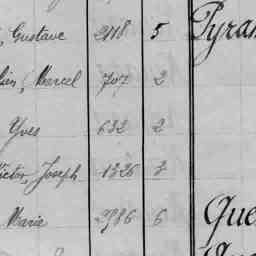 , Gustave 2118 5 Pyram
, Marcel 707 2
Yves 632 2
ictor, Joseph 1326 3
Marie 2986 6 Que